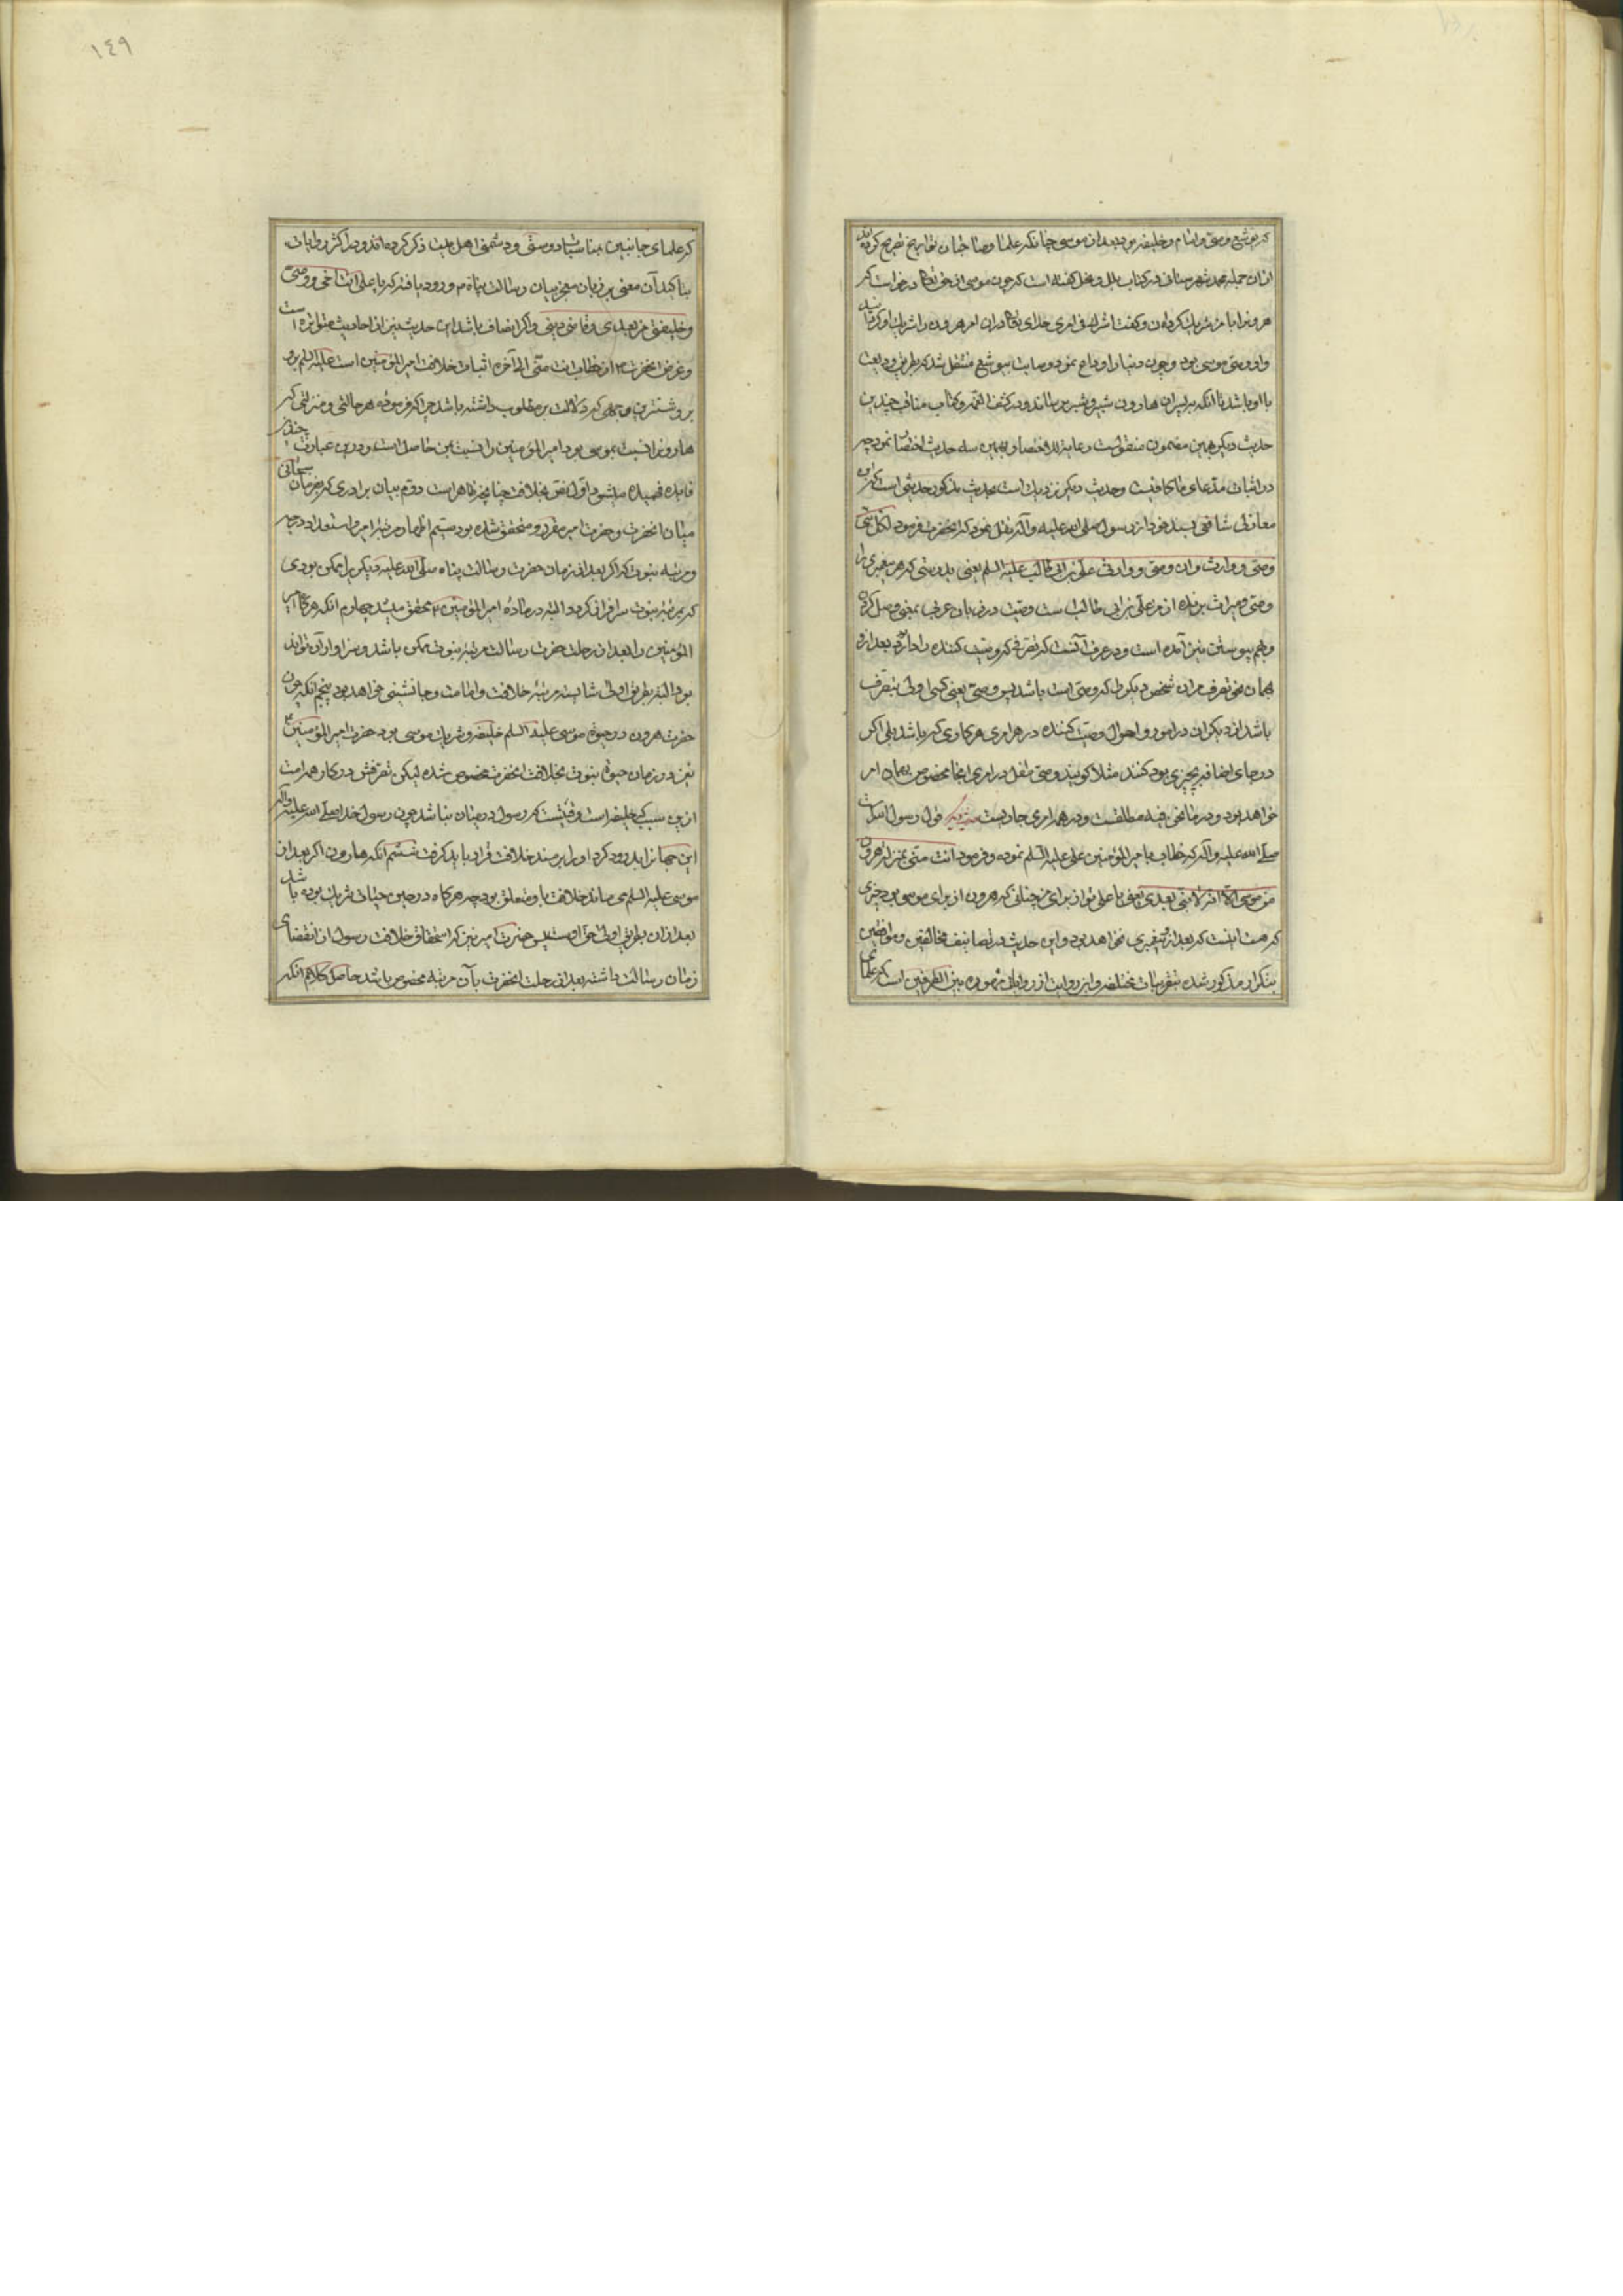 که یوشع وصی و امام و خلیفه بود بعد از موسی چنانکه علما و صاحبان تواریخ تصریح کرده اند
از ان جمله محمد شهرستانی در کتاب ملل و نحل گفته است که چون موسی از حق تعالی درخواست که
هرونرا با من شریک کردان و گفت اشرکه فی امری خدای تعالی در ان امر هرون را شریک او گردانید
و او وصی موسی بود و چون دنیا را وداع نمود وصایت بیوشع منتقل شد که بطریق ودیعت
با او باشد تا انکه به پسران هارون شبیر و شبر برساند و در کشف الغمه و کتاب مناقب چندین
حدیث دیگر بهمین مضمون منقولست رعایة للاختصار بهمین سه حدیث اختصار نمود چه
در اثبات مدعای ما کافیست و حدیث دیگر نزدیک است بحدیث مذکور حدیثی است که ابن
مغازلی شافعی بسند خود از رسول صلی الله علیه و آله نقل نموده که انحضرت فرمود لکل نبی
وصی و وارث و ان وصیی و وارثی علی بن ابی طالب علیه السلم یعنی بدرستی که هر پیغمبری را
وصی و میراث برنده از من علی بن ابی طالب است وصیت در زبان عربی بمعنی وصل کردن
و بهم پیوستن نیز آمده است و در عرف آنست که تصرفی که وصیت کننده را دارد بعد از و
همان نحو تصرف مران شخص دیگر را که وصی است باشد پس وصی یعنی کسی اولی بتصرف
باشد از دیگران در امور و احوال وصیت کننده در هر امری هر کاری که باشد بلی اگر
در جای اضافه بچیزی بود کنند مثلا گویند وصی طفل در امری انجا مخصوص بهمان امر
خواهد بود و در ما نحن فیه مطلقست و در همه امری جاریست قول رسول خداست
صلی الله علیه و آله که خطاب با امیر المؤمنین علی علیه السلم نموده و فرمود انت منی بمنزلة هرون
من موسی الا انه لا نبی بعدی یعنی یا علی تو از برای من چنانی که هرون از برای موسی بود چیزی
که هست اینست که بعد از من پیغمبری نخواهد بود و این حدیث در تصانیف مخالفین و موافقین
بتکرار مذکور شده بتقریبات مختلفه و این روایت از روایات مشهوره بین الطرفین است که علمای
١٤٩
که علمای جانبین بمناسبات دوستی و دشمنی اهل بیت ذکر کرده اند و در اکثر روایات
بتاکید آن معنی بر زبان معجز بیان رسالت پناه ص ورود یافته که یا علی انت اخی و وصیی
و خلیفتی من بعدی و قاضی دینی و اگر انصاف باشد این حدیث نیز از احادیث متواتره است
و غرض انحضرت ص از خطاب انت منی الی آخره اثبات خلافت امیر المؤمنین است علیه السلم بر
روشنترین وجهی که دلالت بر مطلوب داشته باشد چرا که فرموده هر حالتی و منزلتی که
هارونرا نسبت بموسی بود امیر المؤمنین را نسبت بمن حاصل است و درین عبارت چندین
فایده فهمیده میشود اول نص بخلافت چنانچه ظاهر است دوم بیان برادری که بفرمان سبحانی
میان انحضرت و حضرت امیر مقرر و متحقق شده بود سیم اظهار مرتبه امیر و استعداد درجه
و مرتبه نبوت که اگر بعد از زمان حضرت رسالت پناه صلی الله علیه دیگری را ممکن بودی
که بمرتبه نبوت سرافراز گردد البته در ماده امیر المؤمنین ع محقق میشد چهارم انکه هرگاه امیر
المؤمنین را بعد از رحلت حضرت رسالت مرتبه نبوت ممکن باشد و سزاوار آن تواند
بود البته بطریق اولی شایسته مرتبه خلافت و امامت و جانشینی خواهد بود پنجم انکه چون
حضرت هرون در حیوة موسی علیه السلم خلیفه و شریک موسی بود حضرت امیر المؤمنین ع
نیز در زمان حیوة نبوت بخلافت انحضرت مخصوص شده لیکن تصرفش در کار همه امت
ازین سبب که خلیفه است وقتیست که رسول در میان نباشد چون رسول خدا صلی الله علیه و آله
این جهانرا بدرود کرد او را بر مسند خلافت قرار باید گرفت ششم انکه هارون اگر بعد از
موسی علیه السلم می ماند خلافت باو متعلق بود چه هرگاه در حین حیات شریک بوده باشد
بعد ازان بطریق اولی حق اوست پس حضرت امیر نیز که استحقاق خلافت رسول از انقضای
زمان رسالت داشته بعد از رحلت انحضرت بآن مرتبه مخصوص باشد حاصل کلام انکه